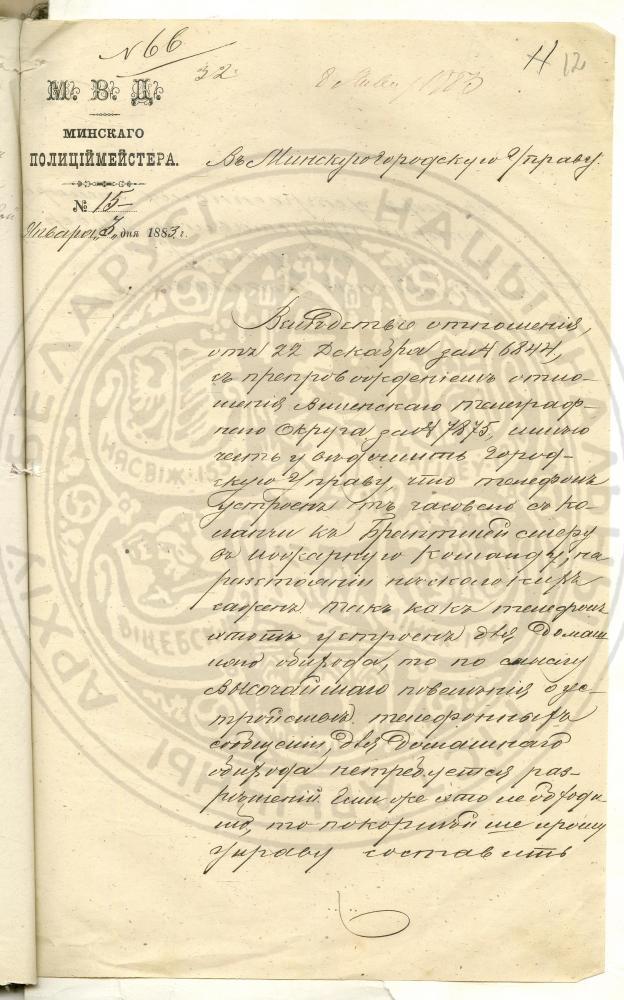 № 66
32.
8 Янв. 1883
11 12
М. В. Д.
МИНСКАГО
ПОЛИЦІЙМЕЙСТЕРА.
№ 15
Января „3„ дня 1883 г.
Въ Минскую городскую Управу.
Вслѣдствіе отношенія,
отъ 22 Декабря за № 6844,
съ препровожденіемъ отно-
шенія Виленскаго телеграф-
наго Округа за № 7875, имѣю
честь увѣдомить Город-
скую Управу, что телефонъ
устроенъ отъ часового съ ко-
ланчи къ Брантмейстеру
въ пожарную Команду, на
разстояніи нѣсколькихъ
саженъ такъ какъ телефонъ
этотъ устроенъ для Домаш
няго обихода, то по смыслу
Высочайшаго повелѣнія о ус-
тройствѣ телефонныхъ
сообщеній, для Домашняго
обихода нетребуется раз-
рѣшеній. Если же это необходи-
мо, то покорнѣйше прошу
Управу составить
АРХІЎ БЕЛАРУСІ НАЦЫЯНАЛЬНЫ
НЯСВІЖ
ВІЦЕБСК